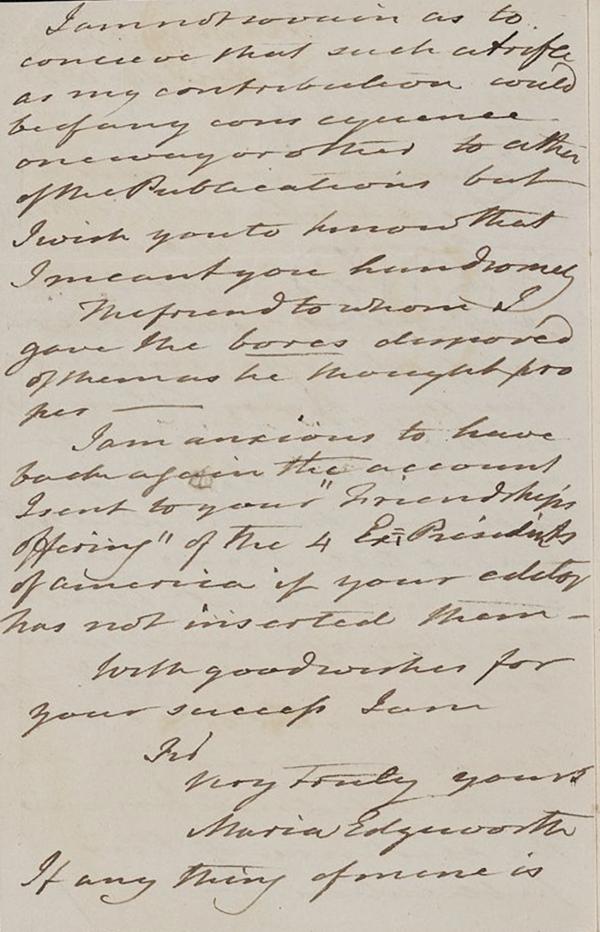 I am not so vain as to
concieve that such a trifle
as my contribution could
be of any consequence
one way or other to either
of the Publications but
I wish you to know that
I meant you handsomely
The friend to whom I
gave the bores disposed
of them as he thought pro
per —
I am anxious to have
back again the account
I sent to your "Friendships
offering" of the 4 Ex=Presidents
of america if your editor
has not inserted them –
With good wishes for
your success I am
Very truly yours
Maria Edgeworth
If any thing of mine is